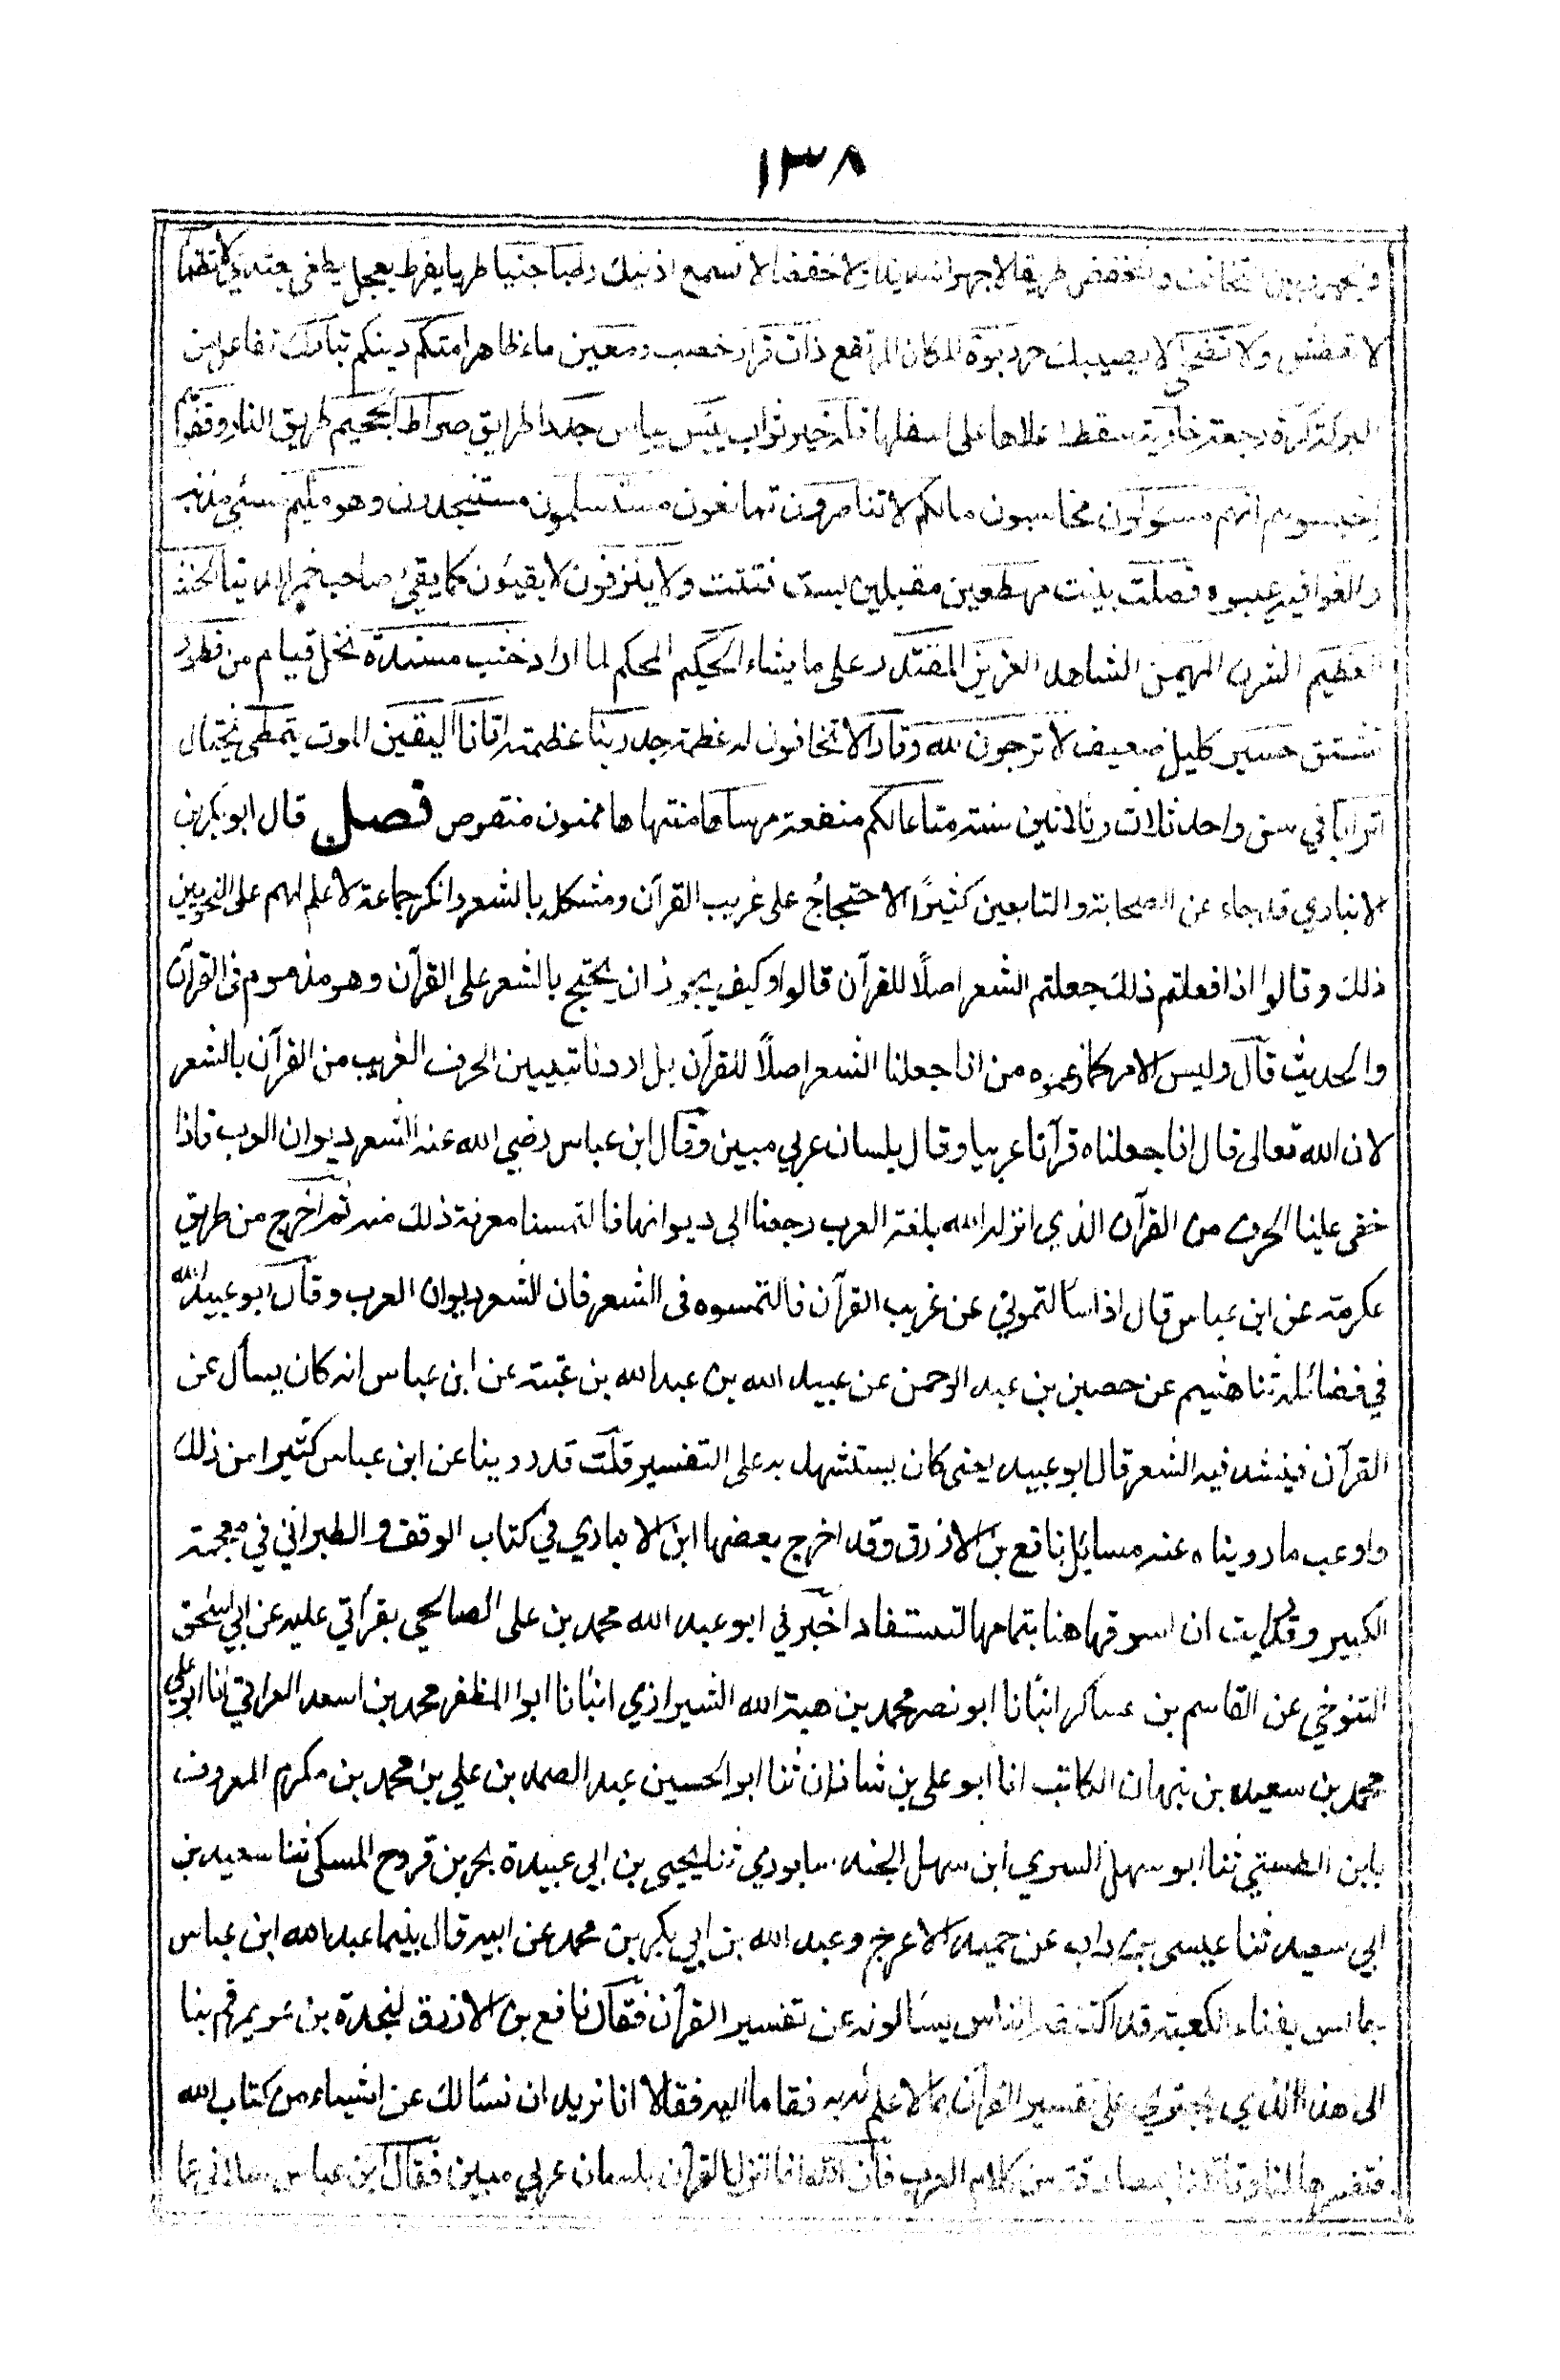 ١٣٨
والخفض طريقا لا جهرا شديدا ولا خفضا لا تسمع اذنيك رطبا جنيا طريا يفرط يعجل يطغى يعتدي لا تظمأ
لا تعطش ولا تضحى لا يصيبك حر ربوة المكان المرتفع ذات قرار خصب ومعين ماء ظاهر امتكم دينكم تبارك تفاعل من
البركة كرة رجعة خاوية سقط اعلاها على اسفلها فله خير ثواب يبس يابس جددا طرايق صراط الجحيم طريق النار وقفوهم
احبسوهم انهم مسؤلون محاسبون مالكم لا تناصرون تمانعون مستسلمون مستنجدون وهو مليم مسئ مذنب
والغوا فيه عيبوه فصلت بينت مهطعين مقبلين بست فتتت ولا ينزفون لا يقيئون كما يقئ صاحب خمر الدنيا الحنث
العظيم الشرك المهيمن الشاهد العزيز المقتدر على ما يشاء الحكيم المحكم لما اراد خشب مسندة نخل قيام من فطور
تشقق حسير كليل ضعيف لا ترجون لله وقارا لا تخافون له عظمة جد ربنا عظمته اتانا اليقين الموت يتمطى يختال
اترابا في سن واحد ثلاث وثلاثين سنة متاعا لكم منفعة مرساها منتهاها ممنون منقوص فصل قال ابو بكر بن
الانباري قد جاء عن الصحابة والتابعين كثيرًا الاحتجاجُ على غريب القرآن ومشكله بالشعر وانكر جماعة لا علم لهم على النحويين
ذلك وقالوا اذا فعلتم ذلك جعلتم الشعر اصلًا للقرآن قالوا وكيف يجوز ان يحتج بالشعر على القرآن وهو مذموم في القرآن
والحديث قال وليس الامر كما زعموه من انا جعلنا الشعر اصلًا للقرآن بل اردنا تبيين الحرف الغريب من القرآن بالشعر
لان الله تعالى قال انا جعلناه قرآنا عربيا وقال بلسان عربي مبين وقال ابن عباس رضي الله عنه الشعر ديوان العرب فاذا
خفى علينا الحرف من القرآن الذي انزله الله بلغة العرب رجعنا الى ديوانها فالتمسنا معرفة ذلك منه ثم اخرج من طريق
عكرمة عن ابن عباس قال اذا سألتموني عن غريب القرآن فالتمسوه فى الشعر فان الشعر ديوان العرب وقال ابو عبيد الله
في فضائله ثنا هشيم عن حصين بن عبد الرحمن عن عبيد الله بن عبد الله بن عتبة عن ابن عباس انه كان يسأل عن
القرآن فينشد فيه الشعر قال ابو عبيد يعنى كان يستشهد به على التفسير قلت قد روينا عن ابن عباس كثيرا من ذلك
واوعب ما رويناه عنه مسايل نافع بن الازرق وقد اخرج بعضها ابن الانباري في كتاب الوقف والطبراني في معجمة
الكبير وقد رايت ان اسوقها هنا بتمامها لتستفاد اخبرني ابو عبد الله محمد بن على الصالحي بقرأتي عليه عن ابي اسحق
التنوخي عن القاسم بن عساكر انبأنا ابو نصر محمد بن هبة الله الشيرازي انبأنا ابوا المظفر محمد بن اسعد العراقي انا ابو علي
محمد بن سعيد بن نبهان الكاتب انا ابو على بن شاذان ثنا ابو الحسين عبد الصمد بن علي بن محمد بن مكرم المعروف
بابن الطستي ثنا ابو سهل السري ابن سهل الجند سابوري ثنا يحيى بن ابي عبيدة بحر بن فروخ المسكى ثنا سعيد بن
ابي سعيد ثنا عيسى بن داب عن حميد الاعرج وعبد الله بن ابي بكر بن محمد عن ابيه قال بينما عبد الله ابن عباس
جالس بفناء الكعبة قد اكتنفه الناس يسألونه عن تفسير القرآن فقال نافع بن الازرق لنجدة بن عويمر قم بنا
الى هذا الذي يجترئ على تفسير القرآن بما لا علم له به فقاما اليه فقالا انا نريد ان نسألك عن اشياء من كتاب الله
فتفسرها لنا وتأتينا بمصادقة من كلام العرب فان الله انما انزل القرآن بلسان عربي مبين فقال ابن عباس سلاني عما